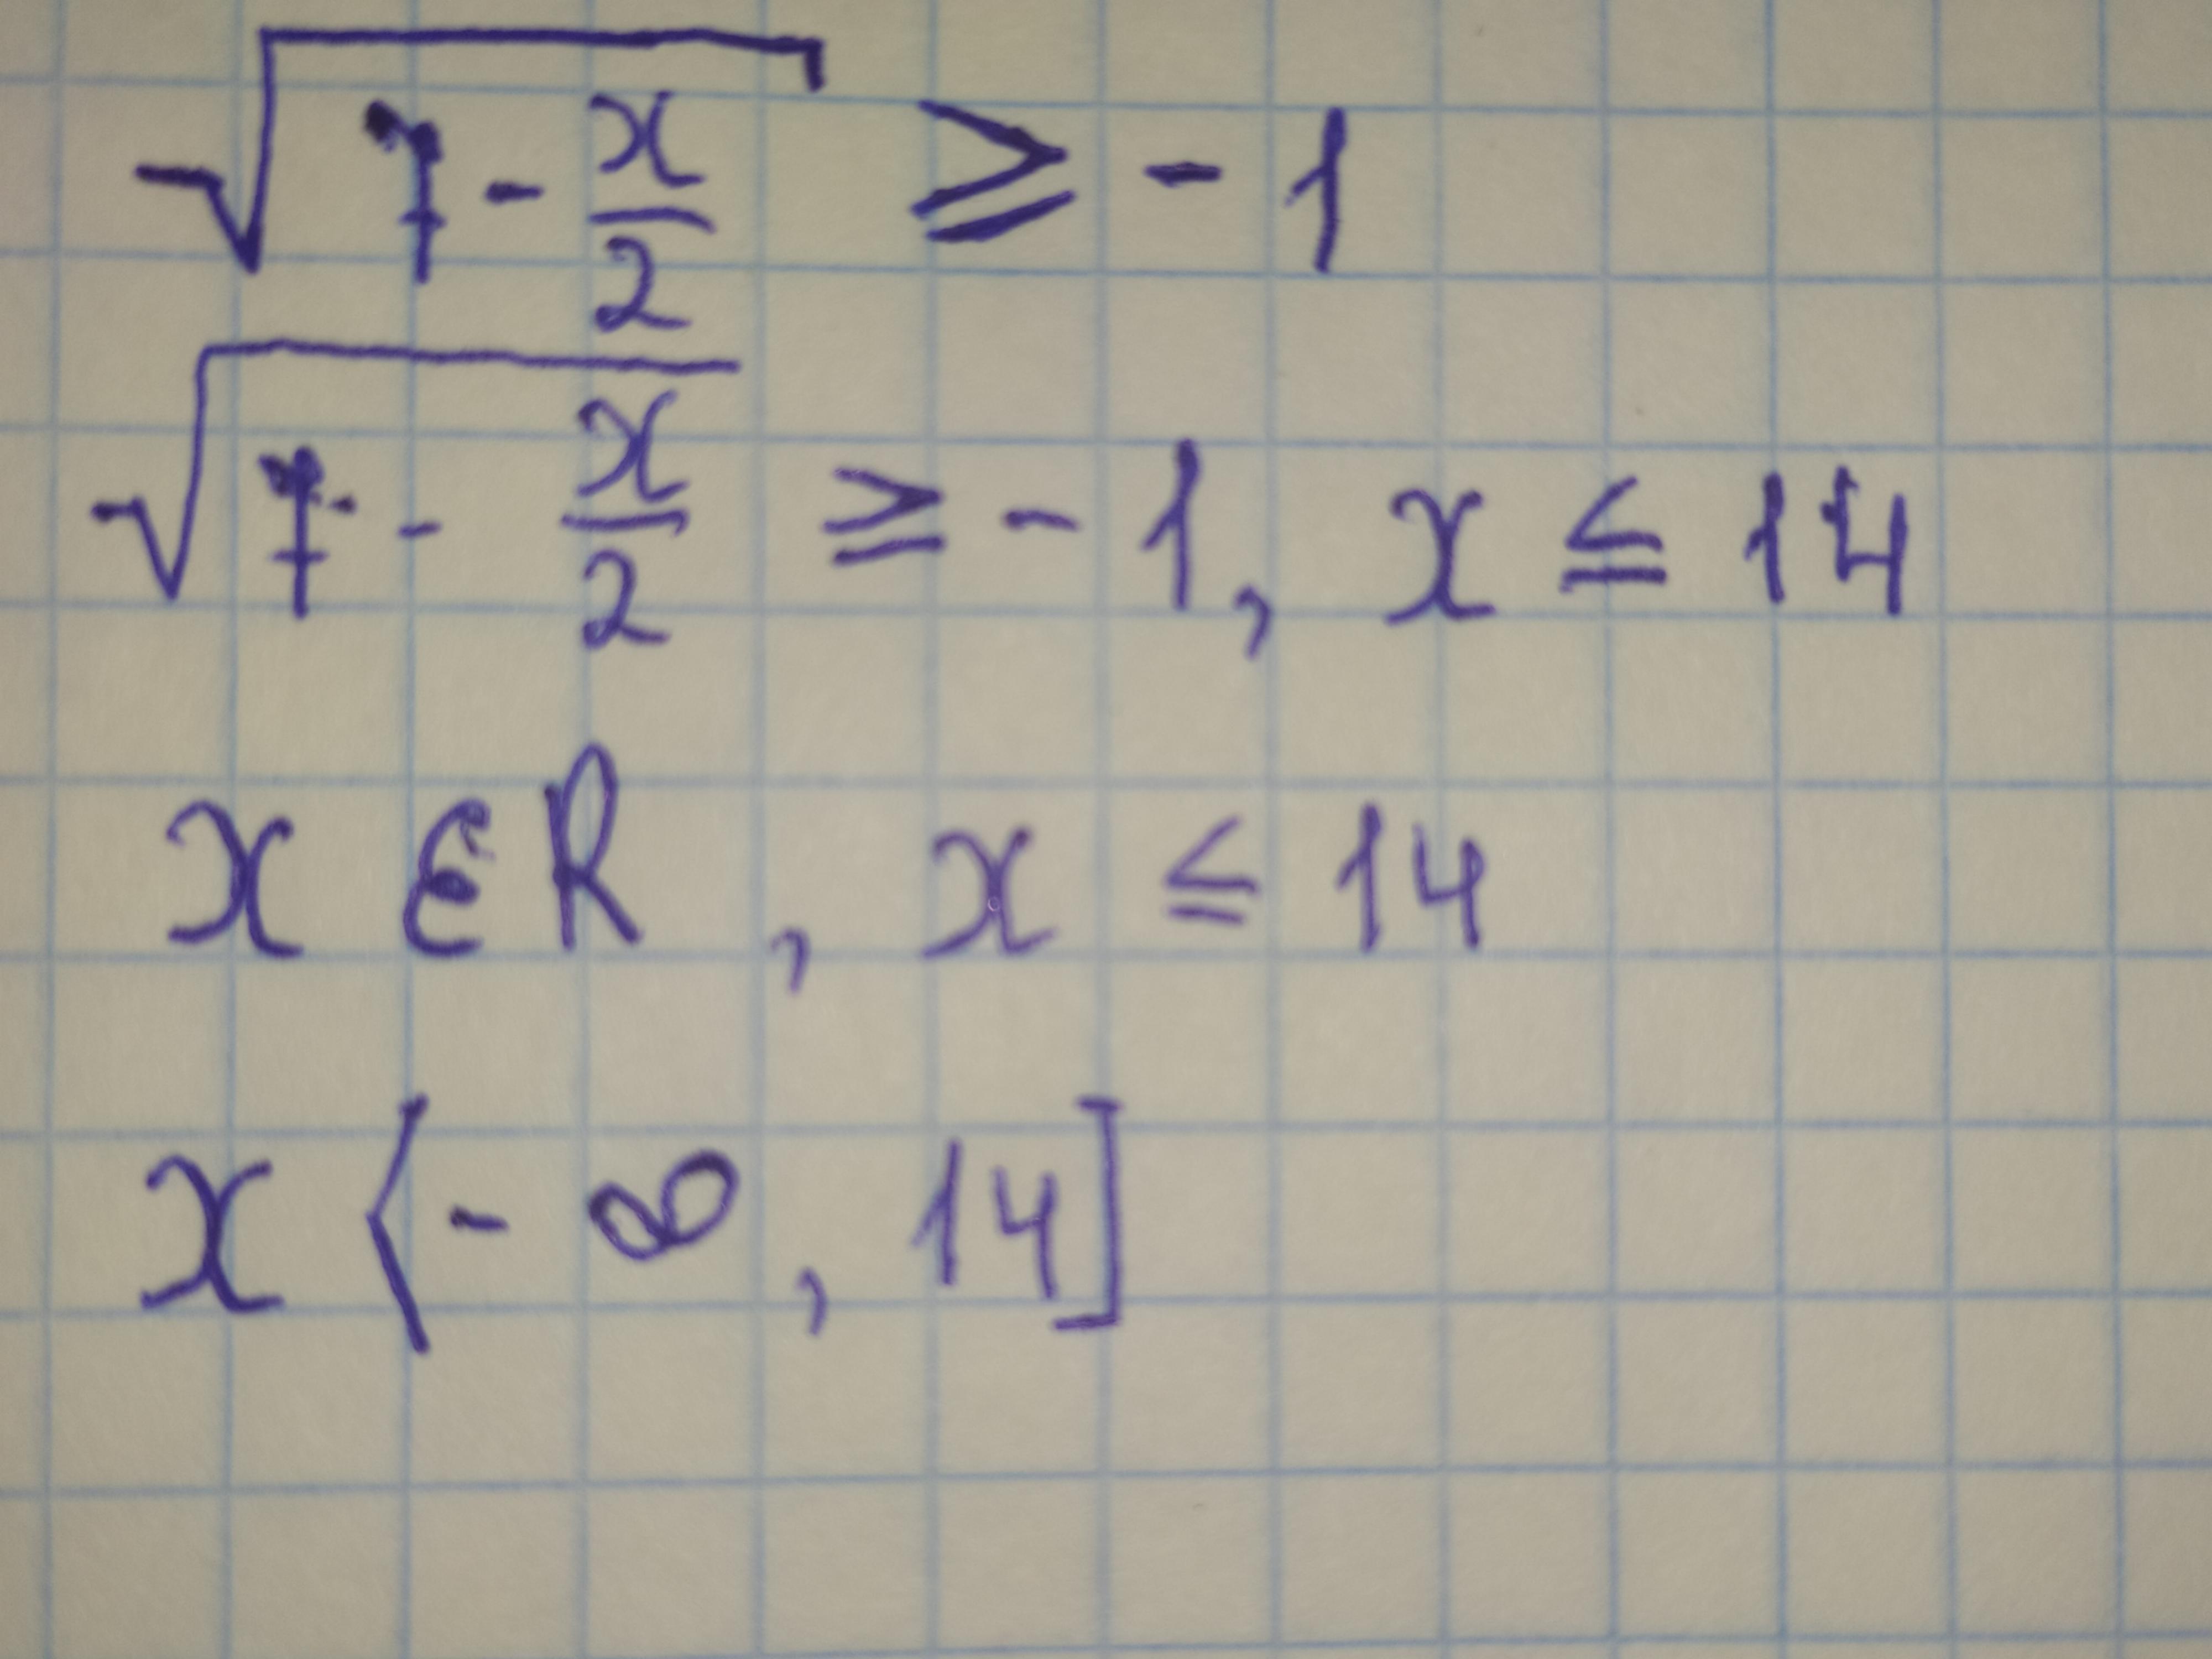 √(7 - x/2) ≥ -1
√(7 - x/2) ≥ -1, x ≤ 14
x ∈ R, x ≤ 14
x ⟨-∞, 14]